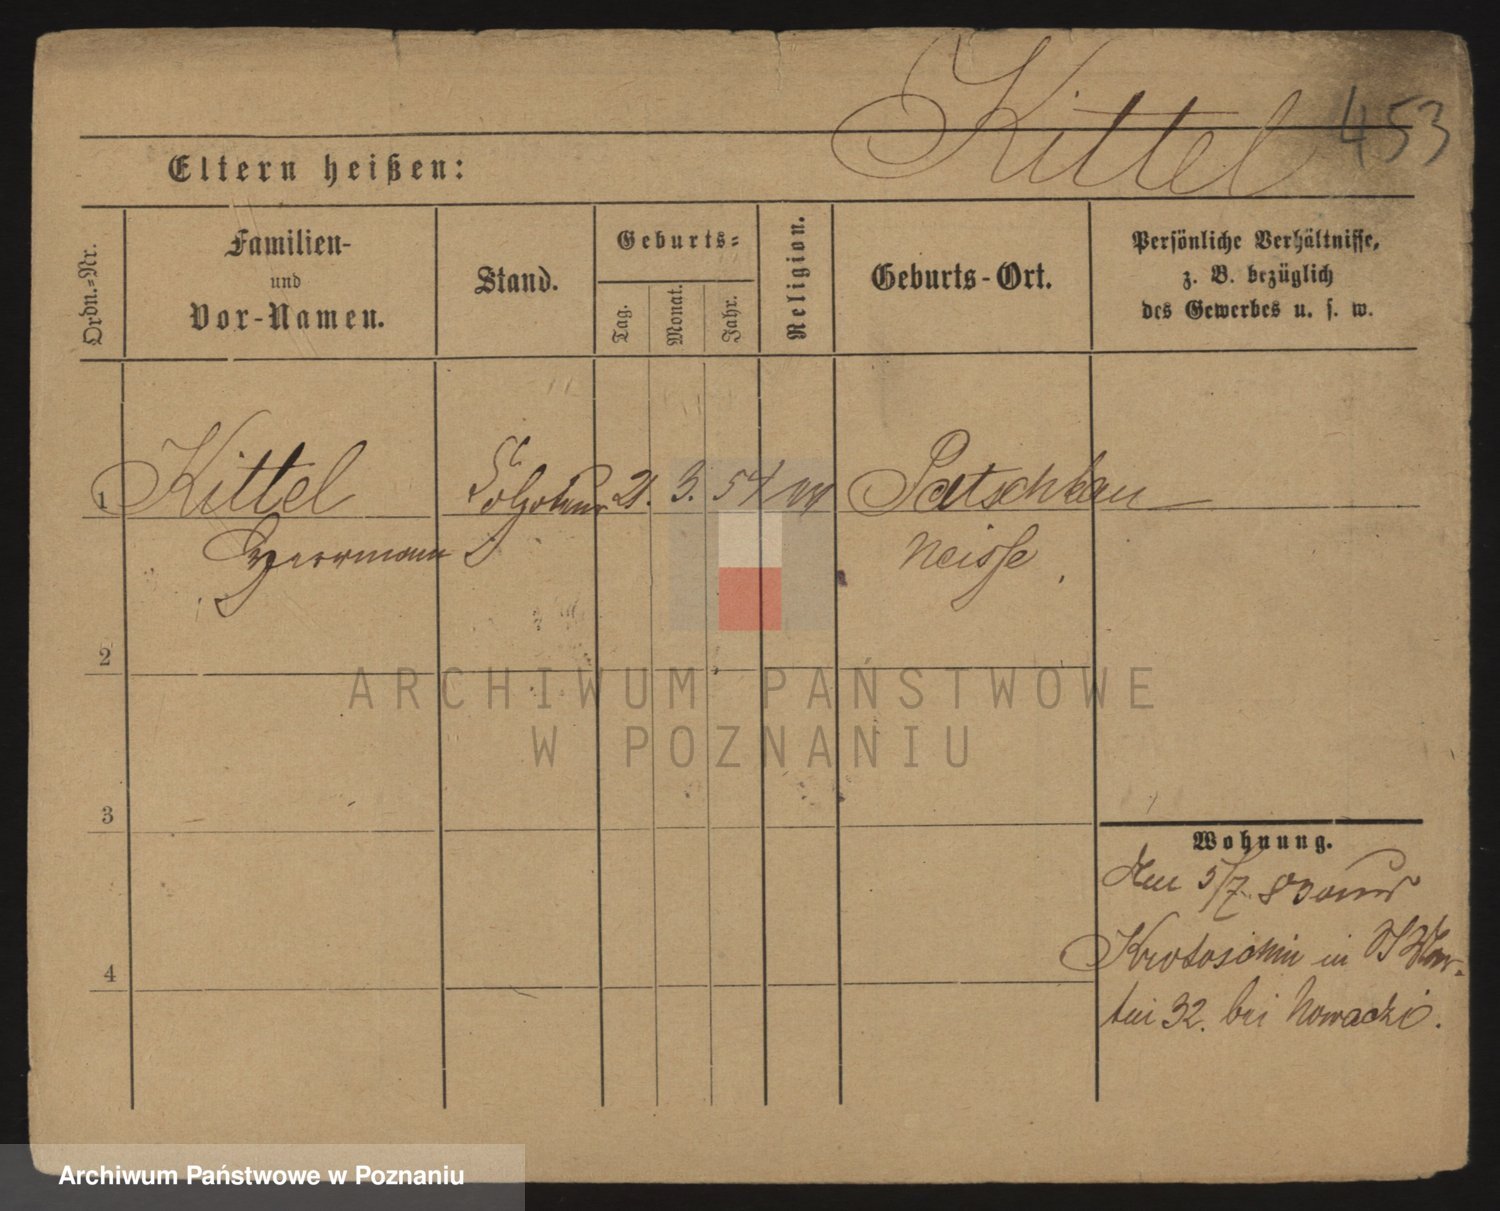 Kittel 453
Eltern heißen:
Ordn.-Nr.
Familien-
und
Vor-Namen.
Stand.
Geburts-
Tag.
Monat.
Jahr.
Religion.
Geburts-Ort.
Persönliche Verhältnisse,
z. B. bezüglich
des Gewerbes u. s. w.
1 Kittel 21. 3. 54 Patschkau
Herrmann Neisse
2
3
4
Wohnung.
5/7. 83
Krotoschin in
32. bei Nowacki.
ARCHIWUM PAŃSTWOWE
W POZNANIU
Archiwum Państwowe w Poznaniu